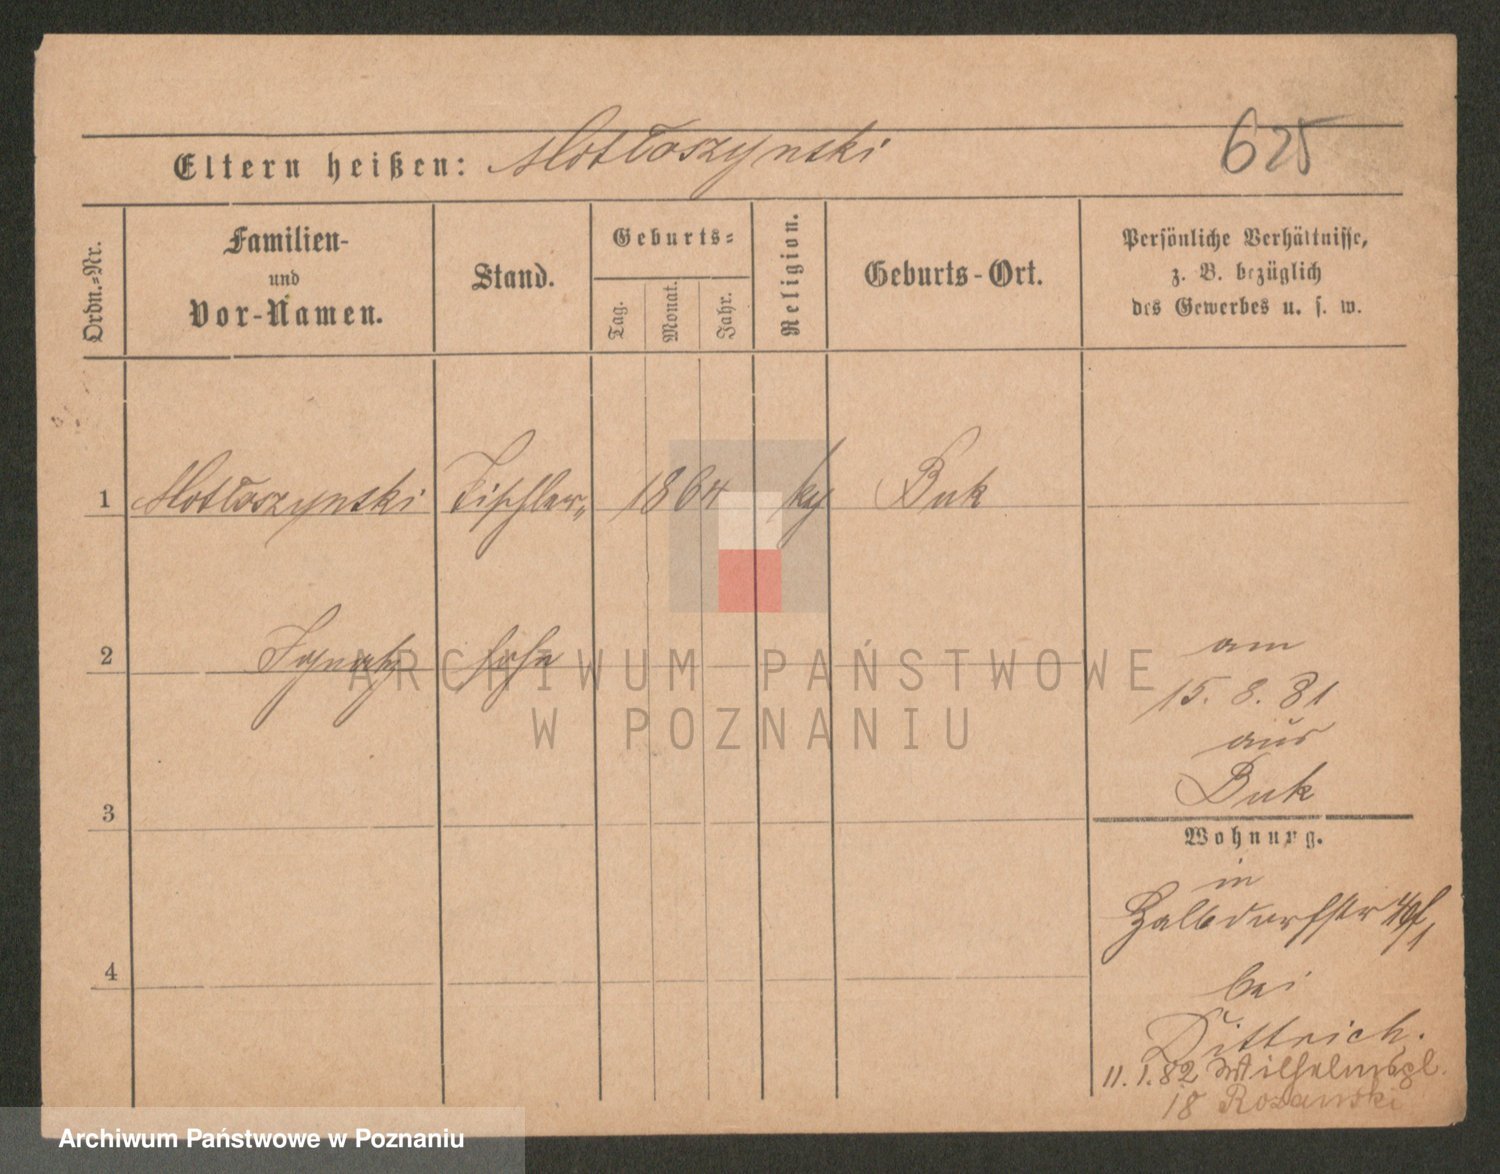 625
Eltern heißen: Motłoszynski
Ordn.-Nr.
Familien-
und
Vor-Namen.
Stand.
Geburts-
Tag.
Monat.
Jahr.
Religion.
Geburts-Ort.
Persönliche Verhältnisse,
z. B. bezüglich
des Gewerbes u. s. w.
1 Motłoszynski Tischler- 1864 Buk
2 Ignatz Sohn
3
4
am
15. 8. 81
aus
Buk
Wohnung.
in
Halbdorfstr
bei
Dittrich.
11. 1. 82 Wilhelmspl.
18 Rozanski
ARCHIWUM PAŃSTWOWE
W POZNANIU
Archiwum Państwowe w Poznaniu